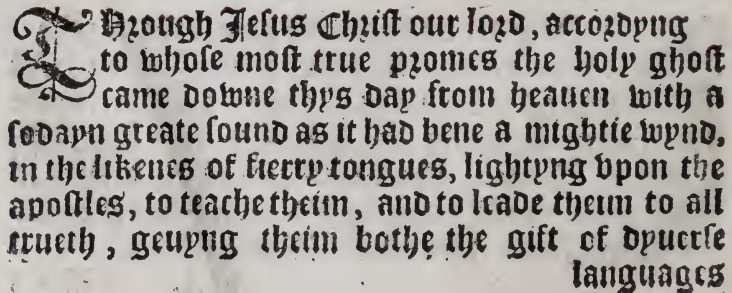 THrough Jesus Christ our lord, accordyng
to whose most true promes the holy ghost
came downe thys day from heauen with a
sodayn greate sound as it had bene a mightie wynd,
in the likenes of fierry tongues, lightyng vpon the
apostles, to teache theim, and to leade theim to all
trueth, geuyng theim bothe the gift of dyuerse
languages